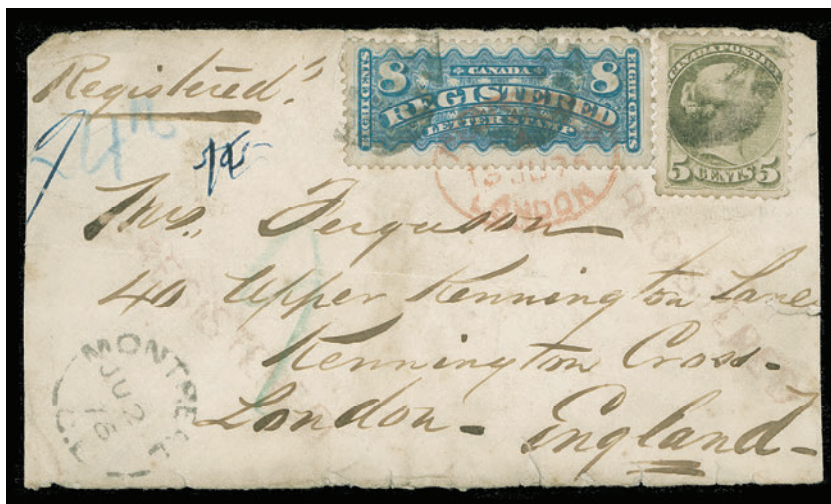 Registered.
8 CANADA 8
EIGHT CENTS REGISTERED EIGHT CENTS
LETTER STAMP
CANADA POSTAGE
5 CENTS 5
LONDON
Mrs. Ferguson
40 Upper Kennington Lane
Kennington Cross-
London- England-
MONTREAL
JU 2
76